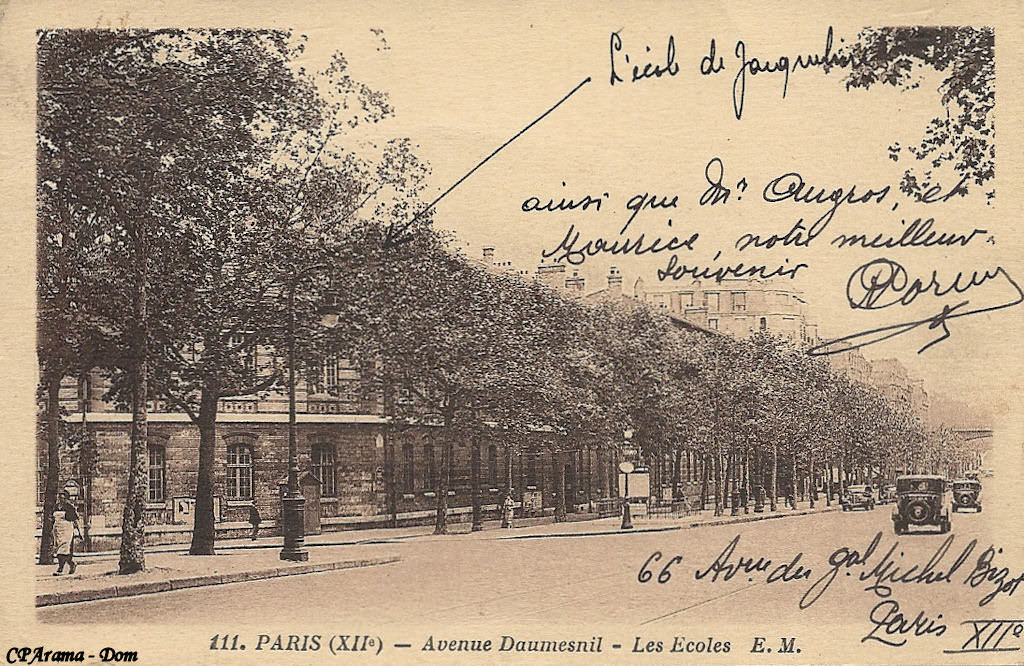 L'école de Jacqueline
ainsi que Mr Augros, et
Maurice, notre meilleur
souvenir
66 Avue du gal Michel Bizot
Paris XIIe
111. PARIS (XIIe) — Avenue Daumesnil - Les Ecoles E. M.
CPArama - Dom